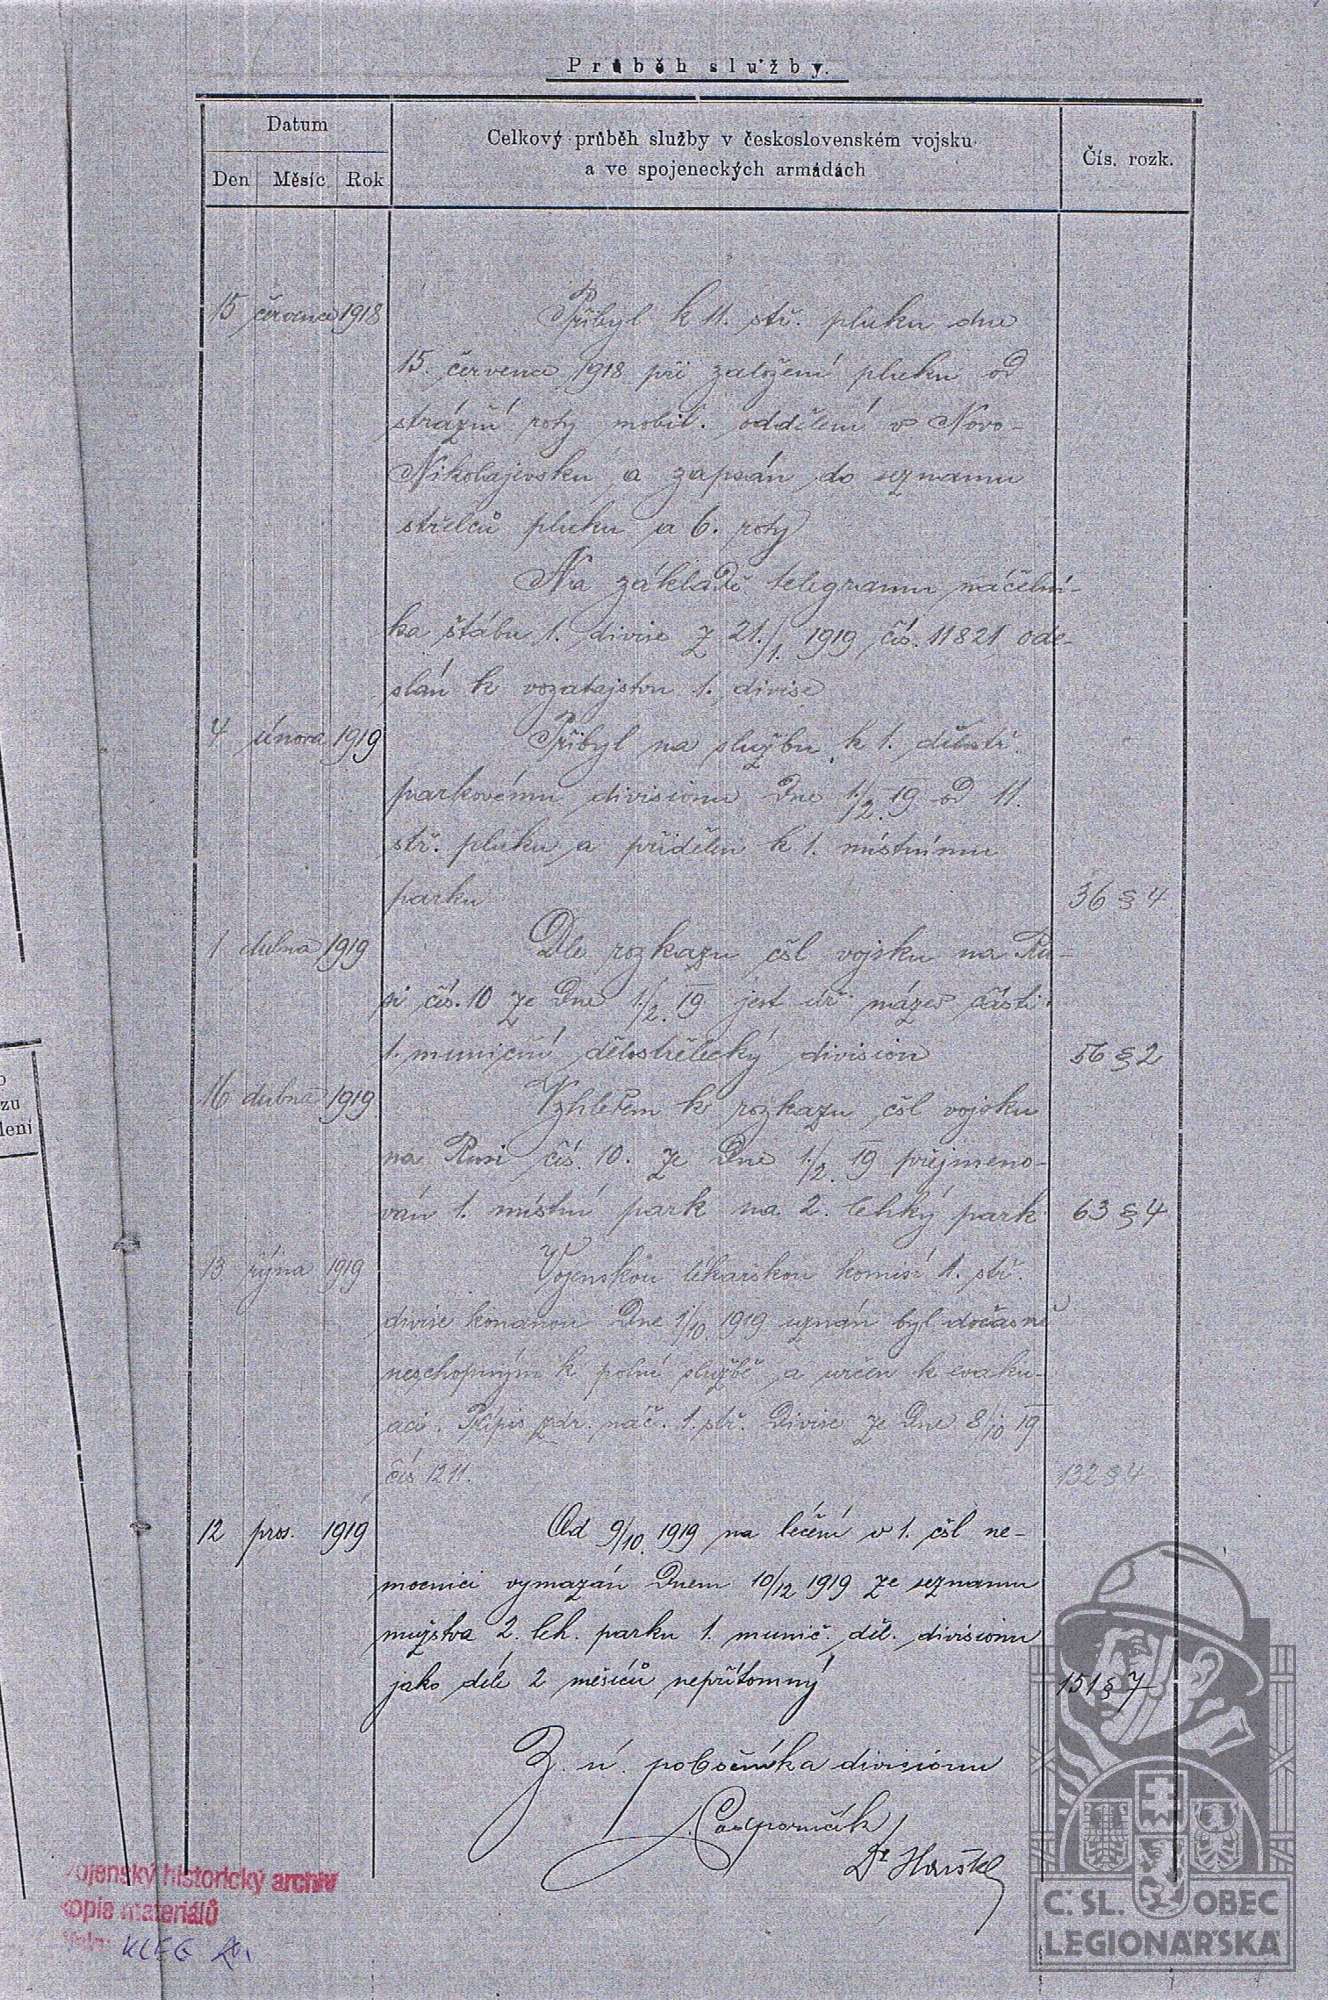 Průběh služby.
Datum
Den Měsíc Rok
Celkový průběh služby v československém vojsku
a ve spojeneckých armádách
Čís. rozk.
15 července 1918 Přibyl k 11. stř. pluku dne
15. července 1918 při založení pluku od
strážní roty mobil. oddělení v Novo-
Nikolajevsku a zapsán do seznamu
střelců pluku a 6. roty
Na základě telegramu náčelní-
ka štábu 1. divise z 21./1. 1919 čís. 11821 ode-
slán k vozatajstvu 1. divise
4 února 1919 Přibyl na službu k 1. dělostř.
parkovému divisionu dne 1./2. 19 od 11.
stř. pluku a přidělen k 1. místnímu
parku 36 § 4
1 dubna 1919 Dle rozkazu čsl vojsku na Ru-
si čís. 10 ze dne 1./2. 19 jest úř. název části:
1. muniční dělostřelecký division 56 § 2
16 dubna 1919 Vzhledem k rozkazu čsl vojsku
na Rusi čís. 10. ze dne 1./2. 19 přejmeno-
ván 1. místní park na 2. lehký park 63 § 4
13. října 1919 Vojenskou lékařskou komisí 1. stř.
divise konanou dne 1/10. 1919 uznán byl dočasně
neschopným k polní službě a určen k evaku-
aci. Přípis zdr. náč. 1. stř. divise ze dne 8/10 19
čís 1211. 132 § 4
12 pros. 1919 Od 9/10. 1919 na léčení v 1. čsl ne-
mocnici vymazán dnem 10/12 1919 ze seznamu
mužstva 2. leh. parku 1. munič. děl. divisionu
jako déle 2 měsíců nepřítomný 151 § 7
Z. n. pobočníka divisionu
podporučík
Dr
zu
lení
Vojenský historický archiv
kopie materiálů
KLEG
Č.SL. OBEC
LEGIONÁŘSKÁ